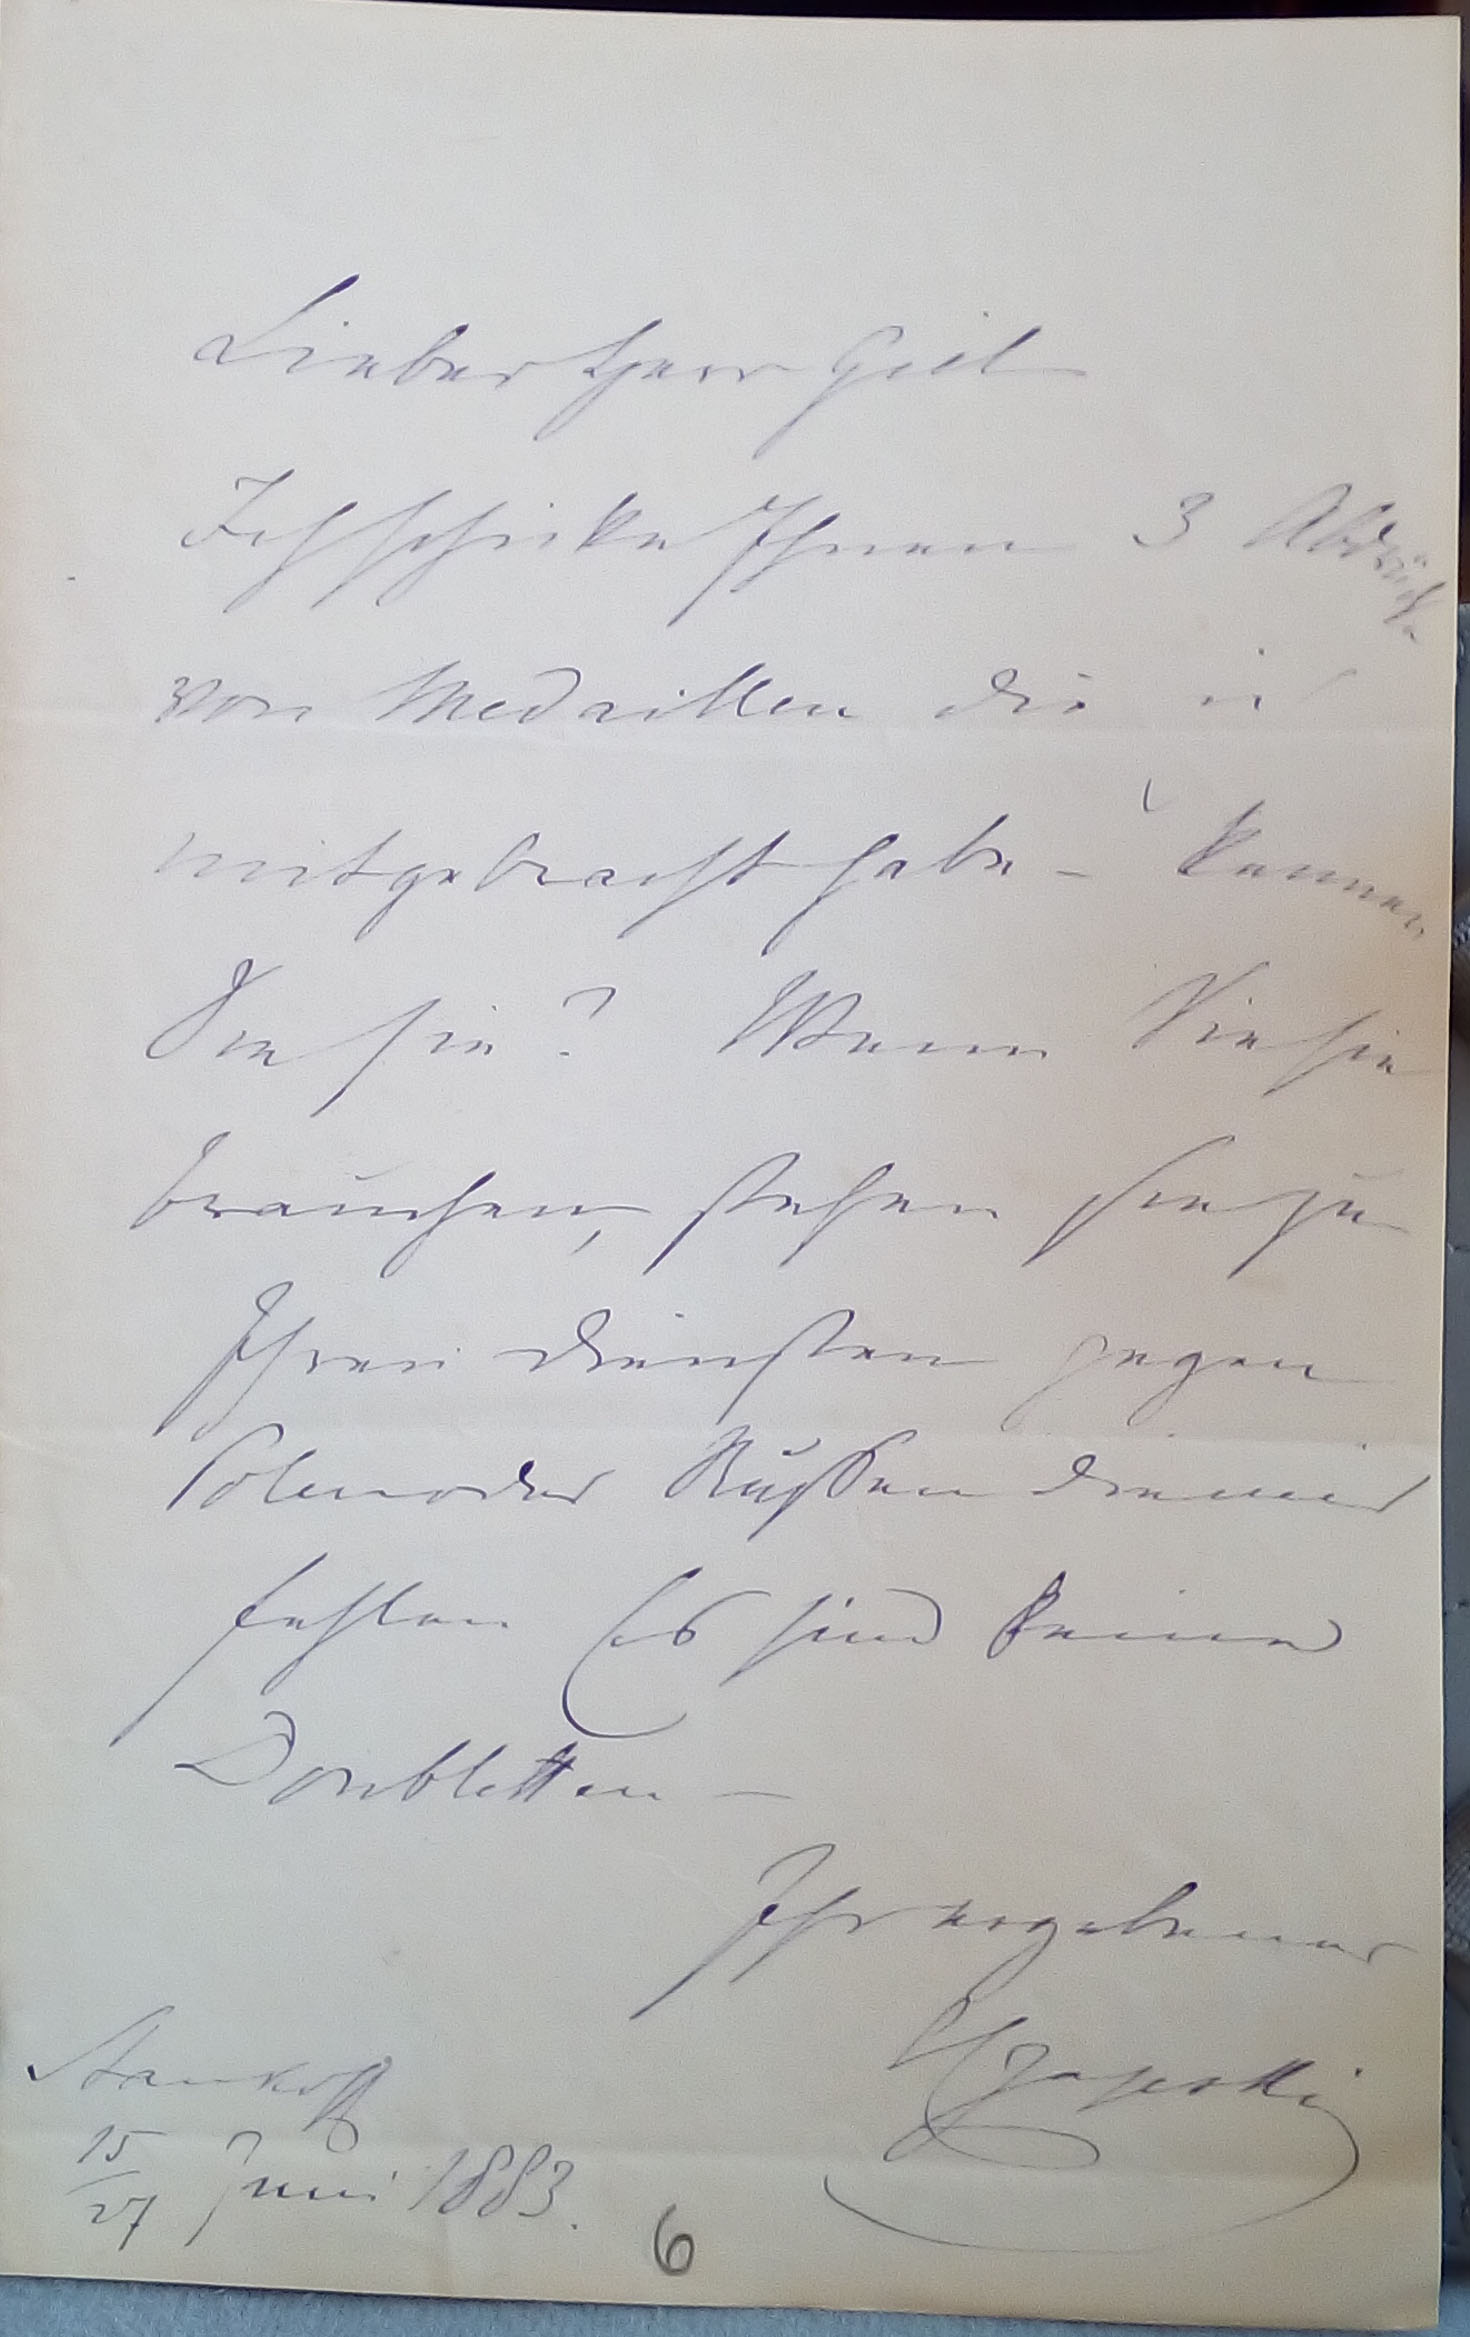 Lieber Herr Giel
Ich schicke Ihnen 3 Abdrücke
von Medaillen die ich
mitgebracht habe – kennen
Sie sie? Wenn Sie sie
brauchen, stehen sie zu
Ihren Diensten gegen
Polen oder Russen die mir
fehlen Es sind keine
Doubletten –
Ihr ergebener
Czapski
Stankoff
15/27 Juni 1883.
6